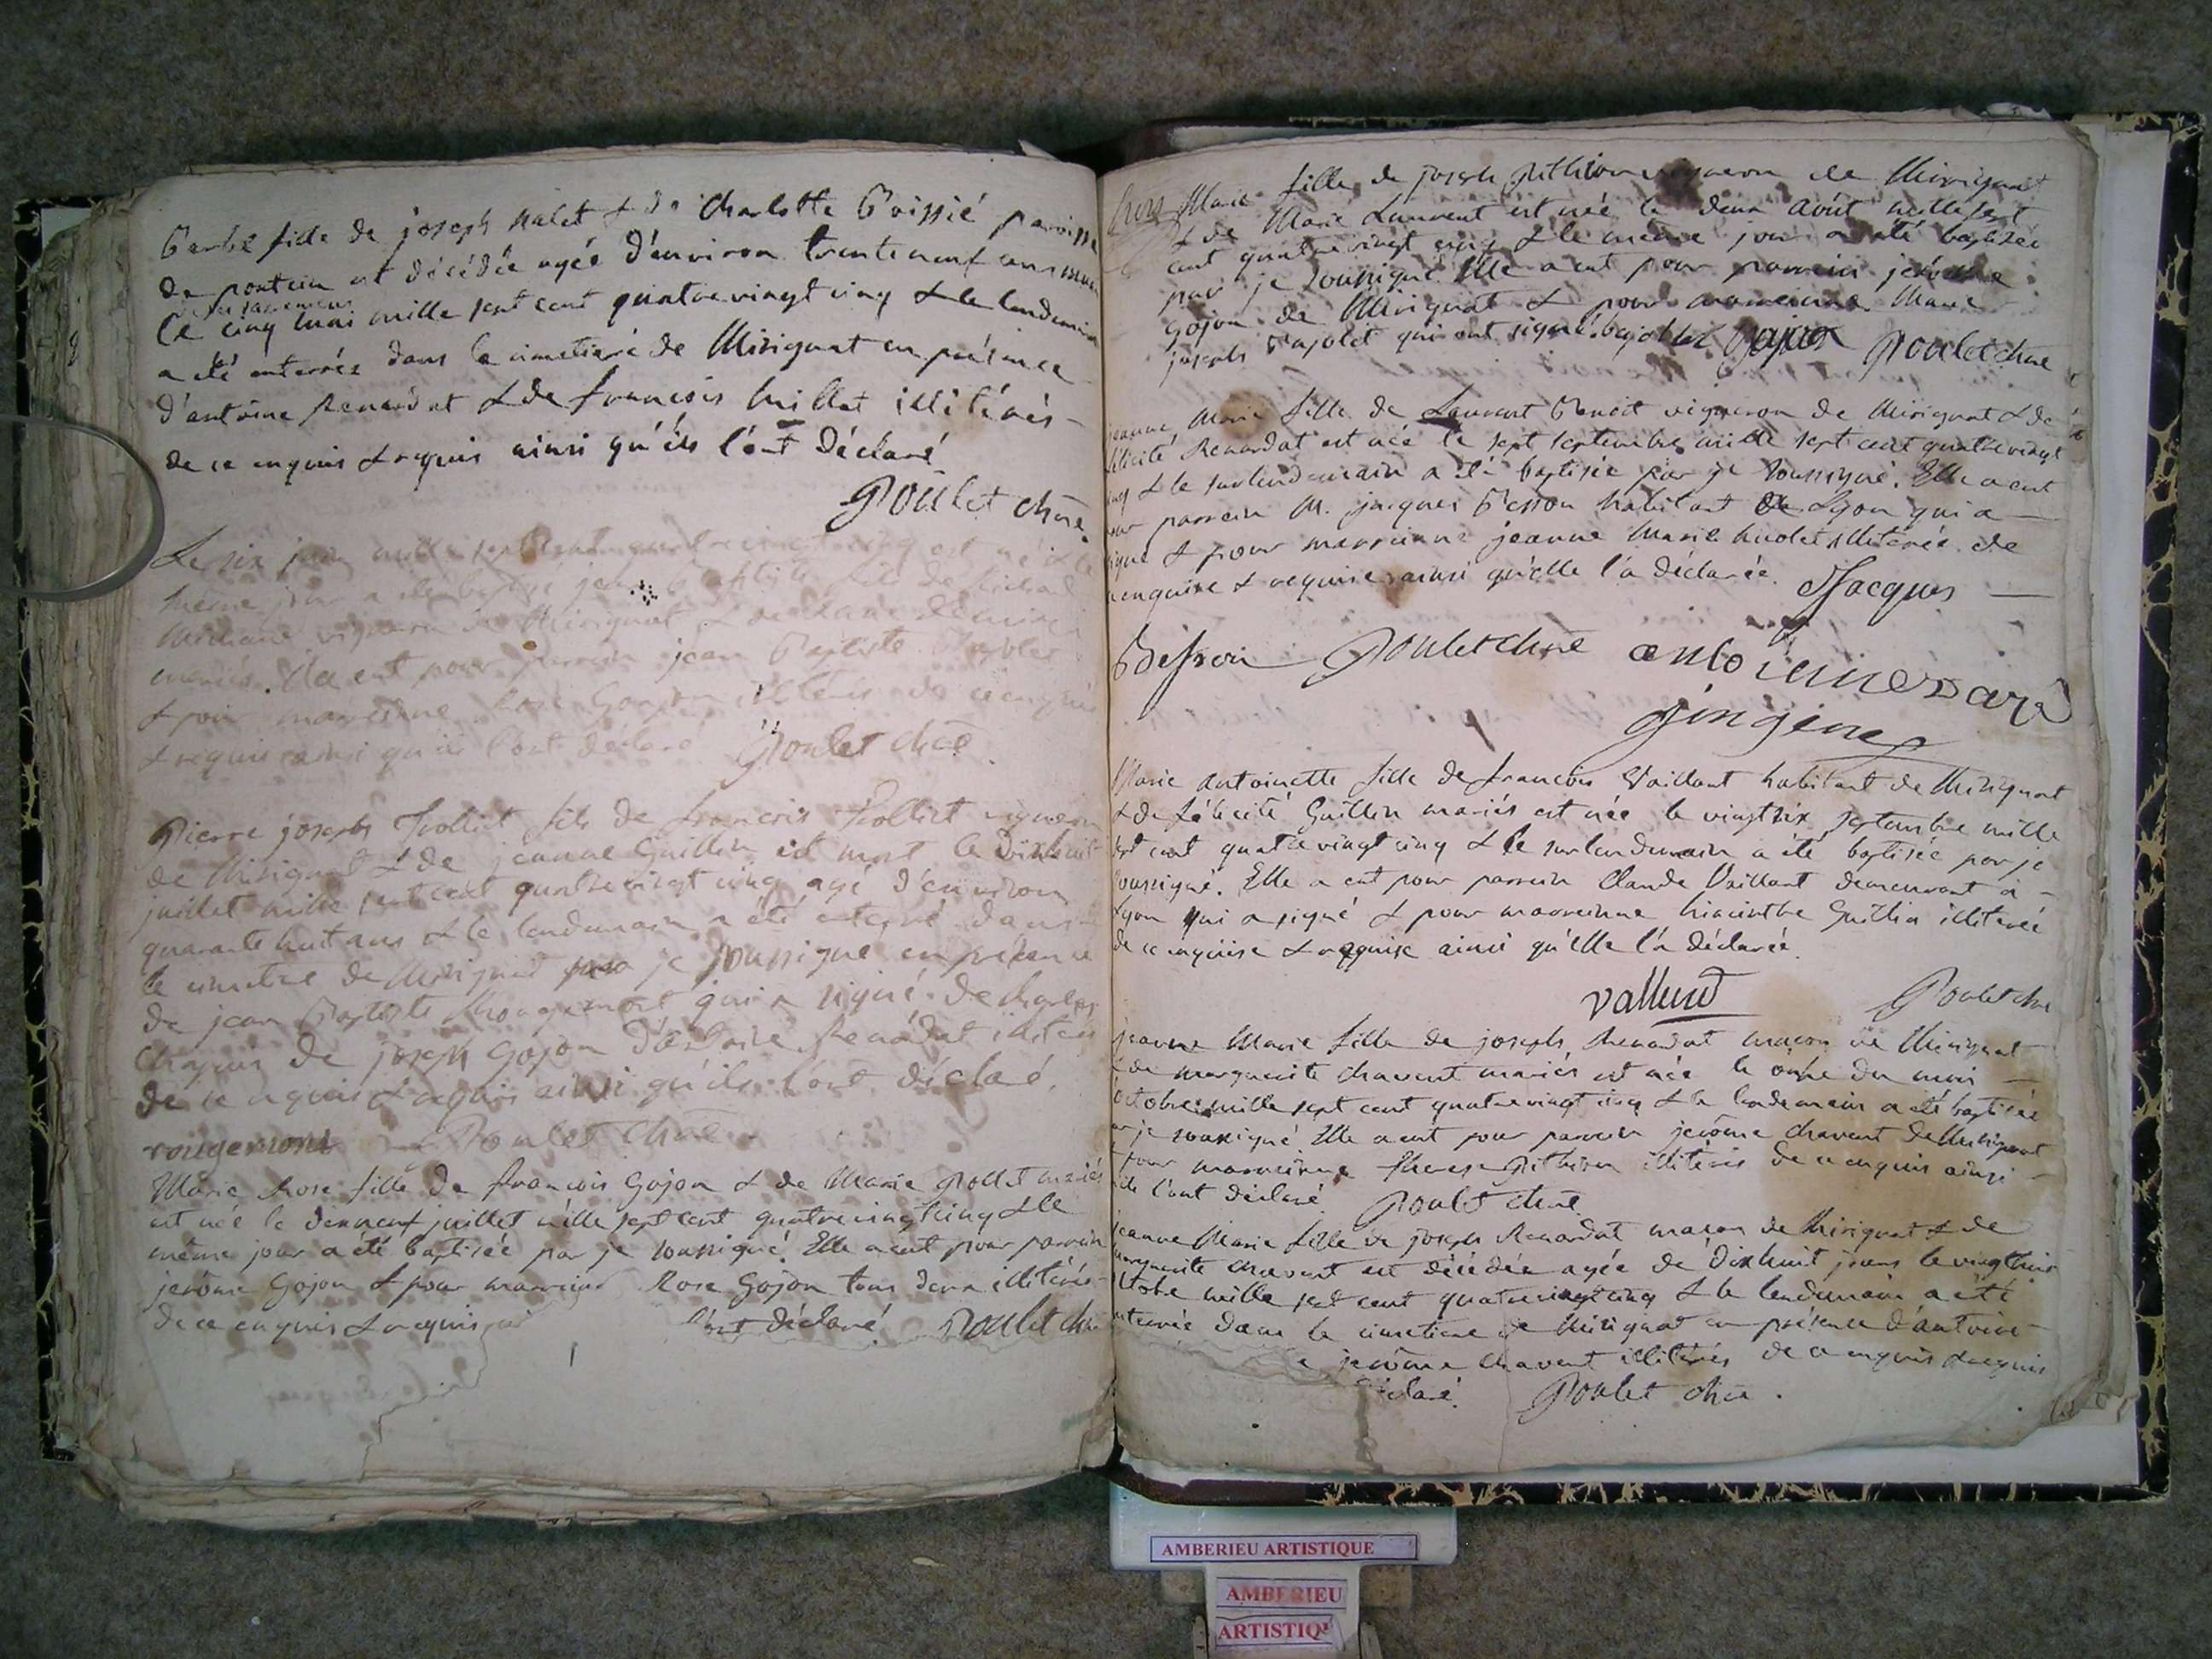 Barbe fille de joseph Malet & de Charlotte Boissié paroisse
de poncin est décédée agée d'environ trente neuf ans munie
des sacremens
le cinq mai mille sept cent quatre vingt cinq & le lendemain
a été enterrée dans le cimetiere de Mérignat en présence
d'antoine Renardat & de françois Millet illitérés
de ce enquis & requis ainsi qu'ils l'ont déclaré
Poulet curé
Le six juin mille sept cent quatre vingt cinq est né & le
même jour a été baptisé jean Baptiste fils de
vigneron de Mérignat &
mariés. Il a eut pour parrein jean Baptiste
& pour marreinne Rose Gojon illiterés de ce enquis
& requis ainsi qu'ils l'ont déclaré Poulet curé
Pierre joseph Trolliet fils de françois Trolliet vigneron
de Mérignat & de jeanne Guillin est mort le dixhuit
juillet mille sept cent quatre vingt cinq agé d'environ
quarante huit ans & le lendemain a été enterré dans
le cimetiere de Mérignat par je soussigné en présence
de jean Baptiste Rougemont qui a signé. de charles
de joseph Gojon d'antoine Renardat illiterés
de ce enquis & requis ainsi qu'ils l'ont déclaré.
rougemont Poulet curé
Marie Rose fille de françois Gojon & de Marie Pollet mariés
est née le dixneuf juillet mille sept cent quatre vingt cinq & le
même jour a été baptisée par je soussigné. Elle a eut pour parrein
jerôme Gojon & pour marreine Rose Gojon tous deux illitérés
de ce enquis & requis l'ont déclaré. Poulet curé
Marie fille de joseph Pithion vigneron de Mérignat
& de Marie Laurent est née le deux août mille sept
cent quatre vingt cinq & le même jour a été baptisée
par je soussigné. Elle a eut pour parrein jerôme
Gojon de Mérignat & pour marreinne Marie
joseph Bajolet qui ont signé. bajollet Gojon Poulet curé
jeanne Marie fille de Laurent Benoit vigneron de Mérignat & de
félicité Renardat est née le sept septembre mille sept cent quatre vingt
cinq & le surlendemain a été baptisée par je soussigné. Elle a eut
pour parrein M. jacques Besson habitant de Lyon qui a
signé & pour marreinne jeanne Marie Millet illiterée de
ce enquise & requise ainsi qu'elle l'a déclarée. Jacques
Besson Poulet curé antoinne
Marie Antoinette fille de francois Vaillant habitant de Mérignat
& de félicité Guillin mariés est née le vingtsix septembre mille
sept cent quatre vingt cinq & le surlendemain a été baptisée par je
soussigné. Elle a eut pour parrein Claude Vaillant demeurant à
Lyon qui a signé & pour marreinne hiacinthe Guillin illiterée
de ce enquise & requise ainsi qu'elle l'a déclarée.
Poulet curé
jeanne Marie fille de joseph Renardat maçon de Mérignat
& de marguerite Chavent mariés est née le onze du mois
octobre mille sept cent quatre vingt cinq & le lendemain a été baptisée
par je soussigné Elle a eut pour parrein jerôme Chavent de Mérignat
& pour marreinne therese Pithion illiterés de ce enquis ainsi
qu'ils l'ont déclaré. Poulet curé
jeanne Marie fille de joseph Renardat maçon de Mérignat & de
marguerite Chavent est décédée agée de dixhuit jours le vingthuit
octobre mille sept cent quatre vingt cinq & le lendemain a été
enterrée dans le cimetiere de Mérignat en présence d'antoine
jerôme Chavent illiterés de ce enquis & requis
déclaré. Poulet curé.
AMBERIEU ARTISTIQUE
AMBERIEU
ARTISTIQ